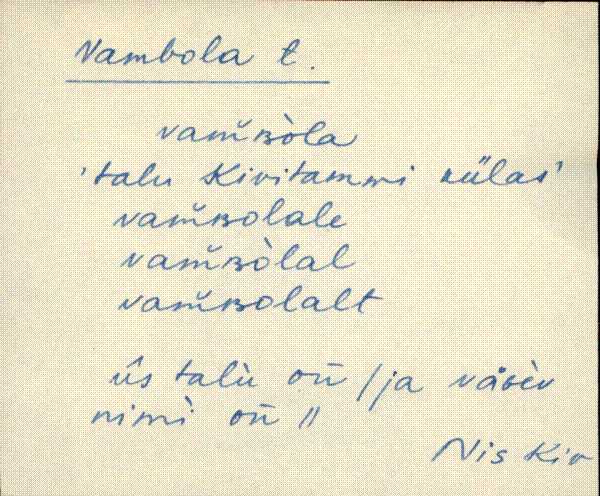 Vambola t.
vam̆ʙòla
'talu Kivitammi külas'
vam̆ʙolale
vam̆ʙòlal
vam̆ʙolalt
üs talù on̄ /ja
nimì on̄ //
Nis Kiv